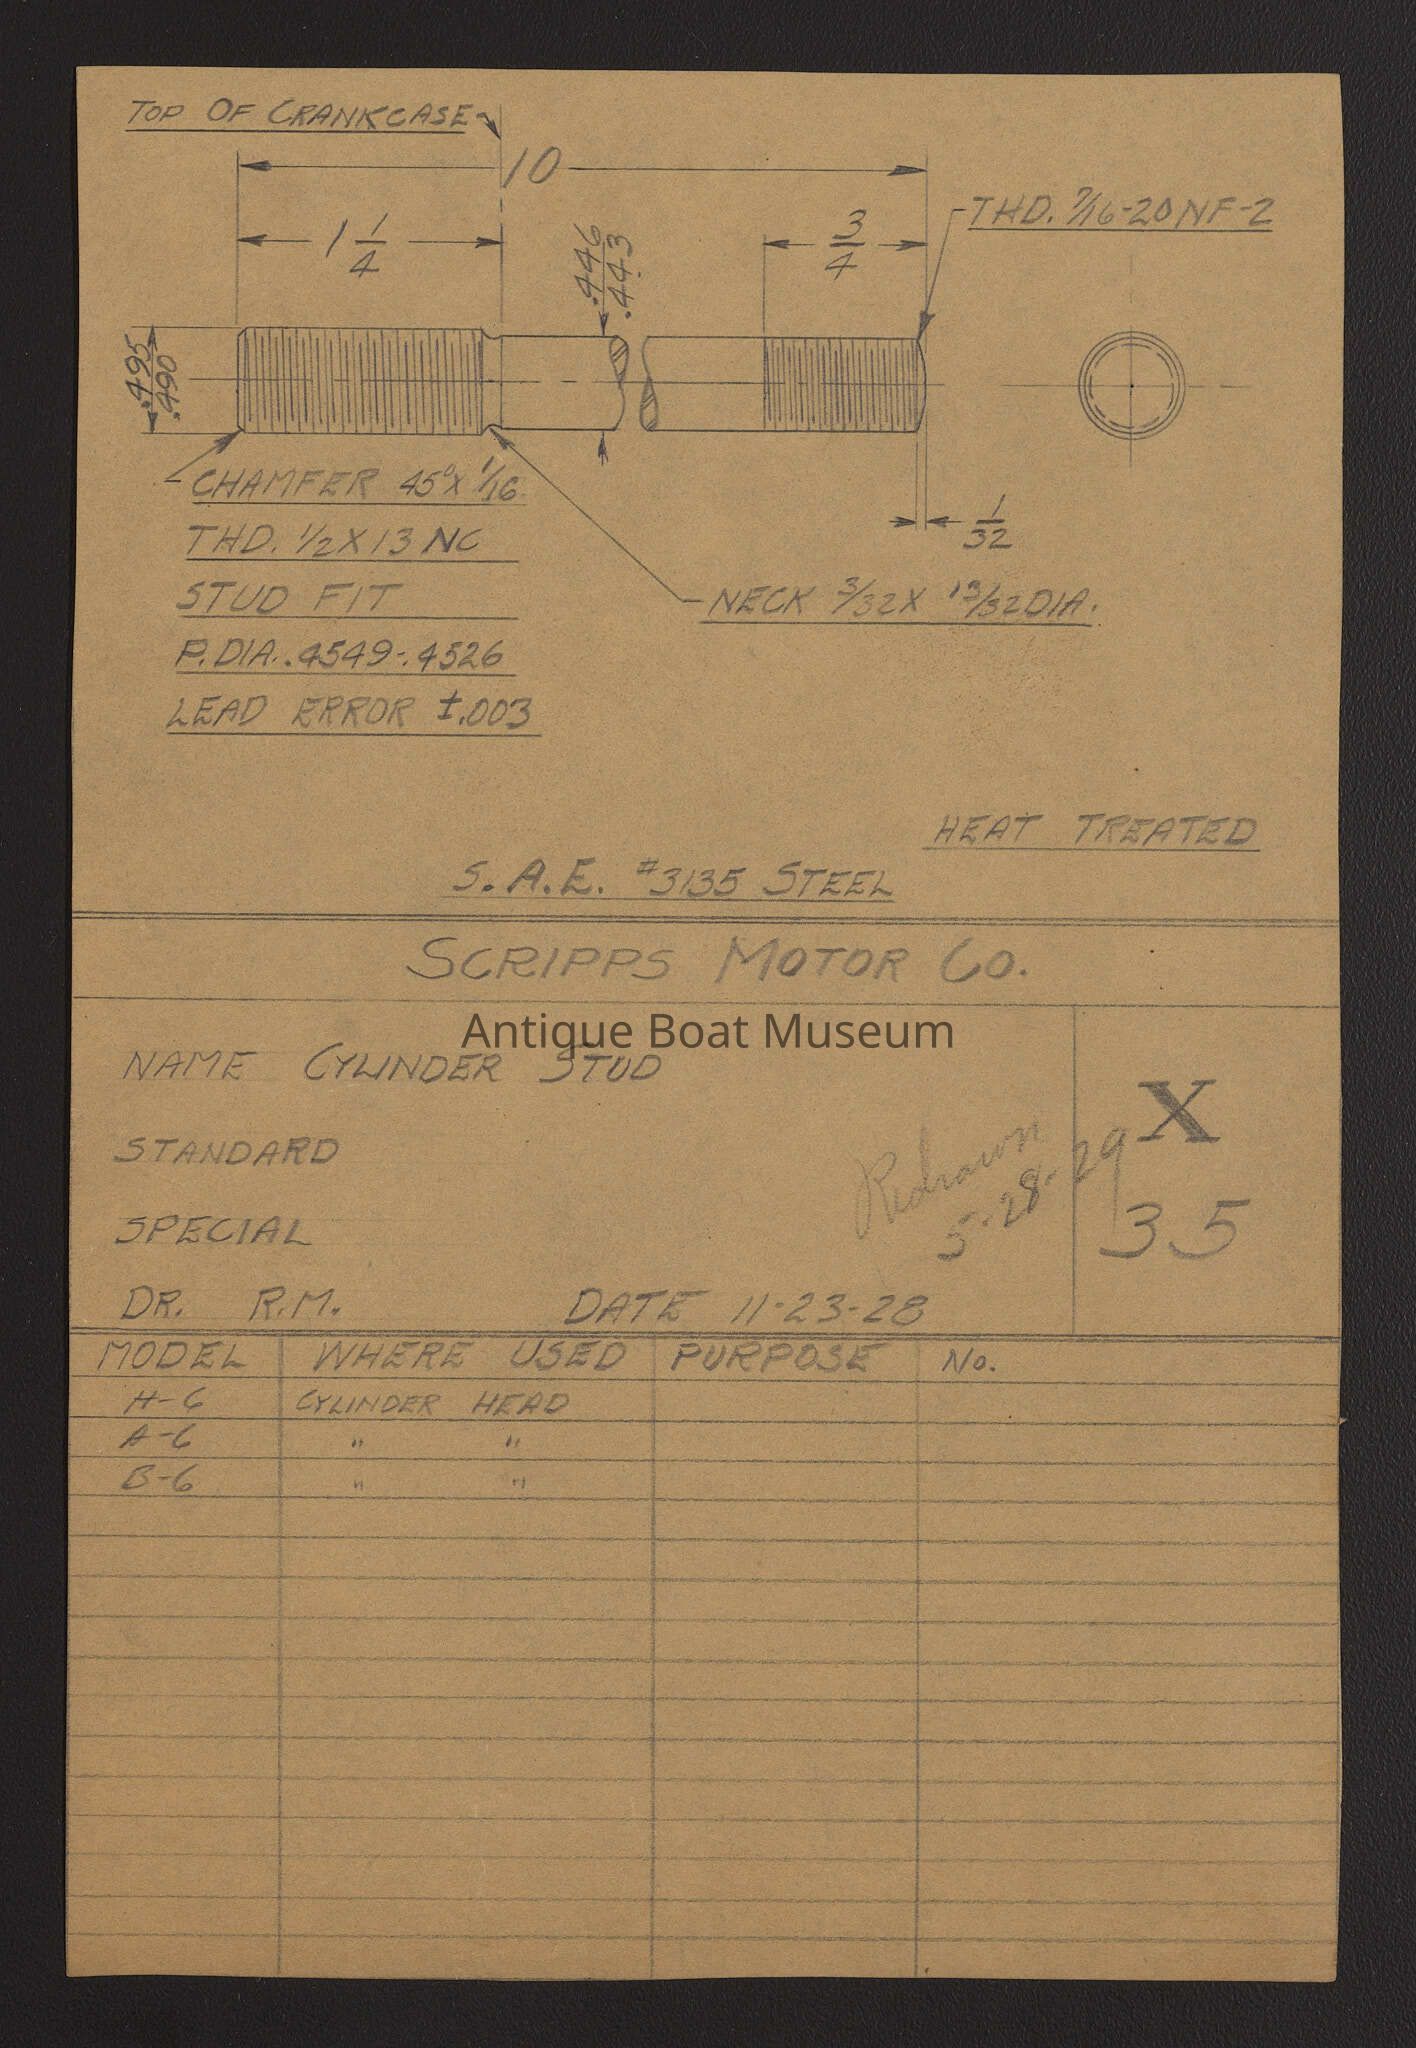 TOP OF CRANKCASE
10
THD. 7/16-20NF-2
1 1/4
.446
.443
3/4
.495
.490
CHAMFER 45° X 1/16
THD. 1/2 X 13 NC
1/32
STUD FIT
NECK 3/32 X 13/32 DIA.
P. DIA. .4549-.4526
LEAD ERROR ±.003
HEAT TREATED
S.A.E. #3135 STEEL
SCRIPPS MOTOR CO.
Antique Boat Museum
NAME CYLINDER STUD
X
STANDARD
Redrawn
5-28-29
35
SPECIAL
DR. R.M. DATE 11-23-28
MODEL WHERE USED PURPOSE No.
H-6 CYLINDER HEAD
A-6 " "
B-6 " "